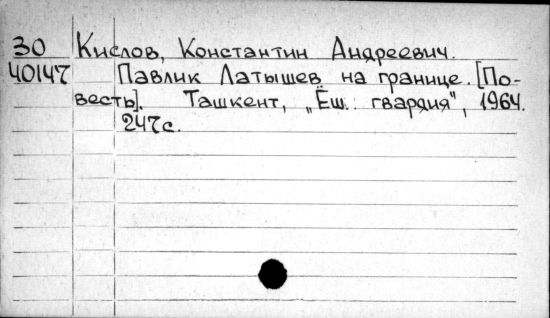 30 Кислов, Константин Андреевич.
40147 Павлик Латышев на границе. [По-
весть]. Ташкент, „Ёш. гвардия", 1964.
247с.